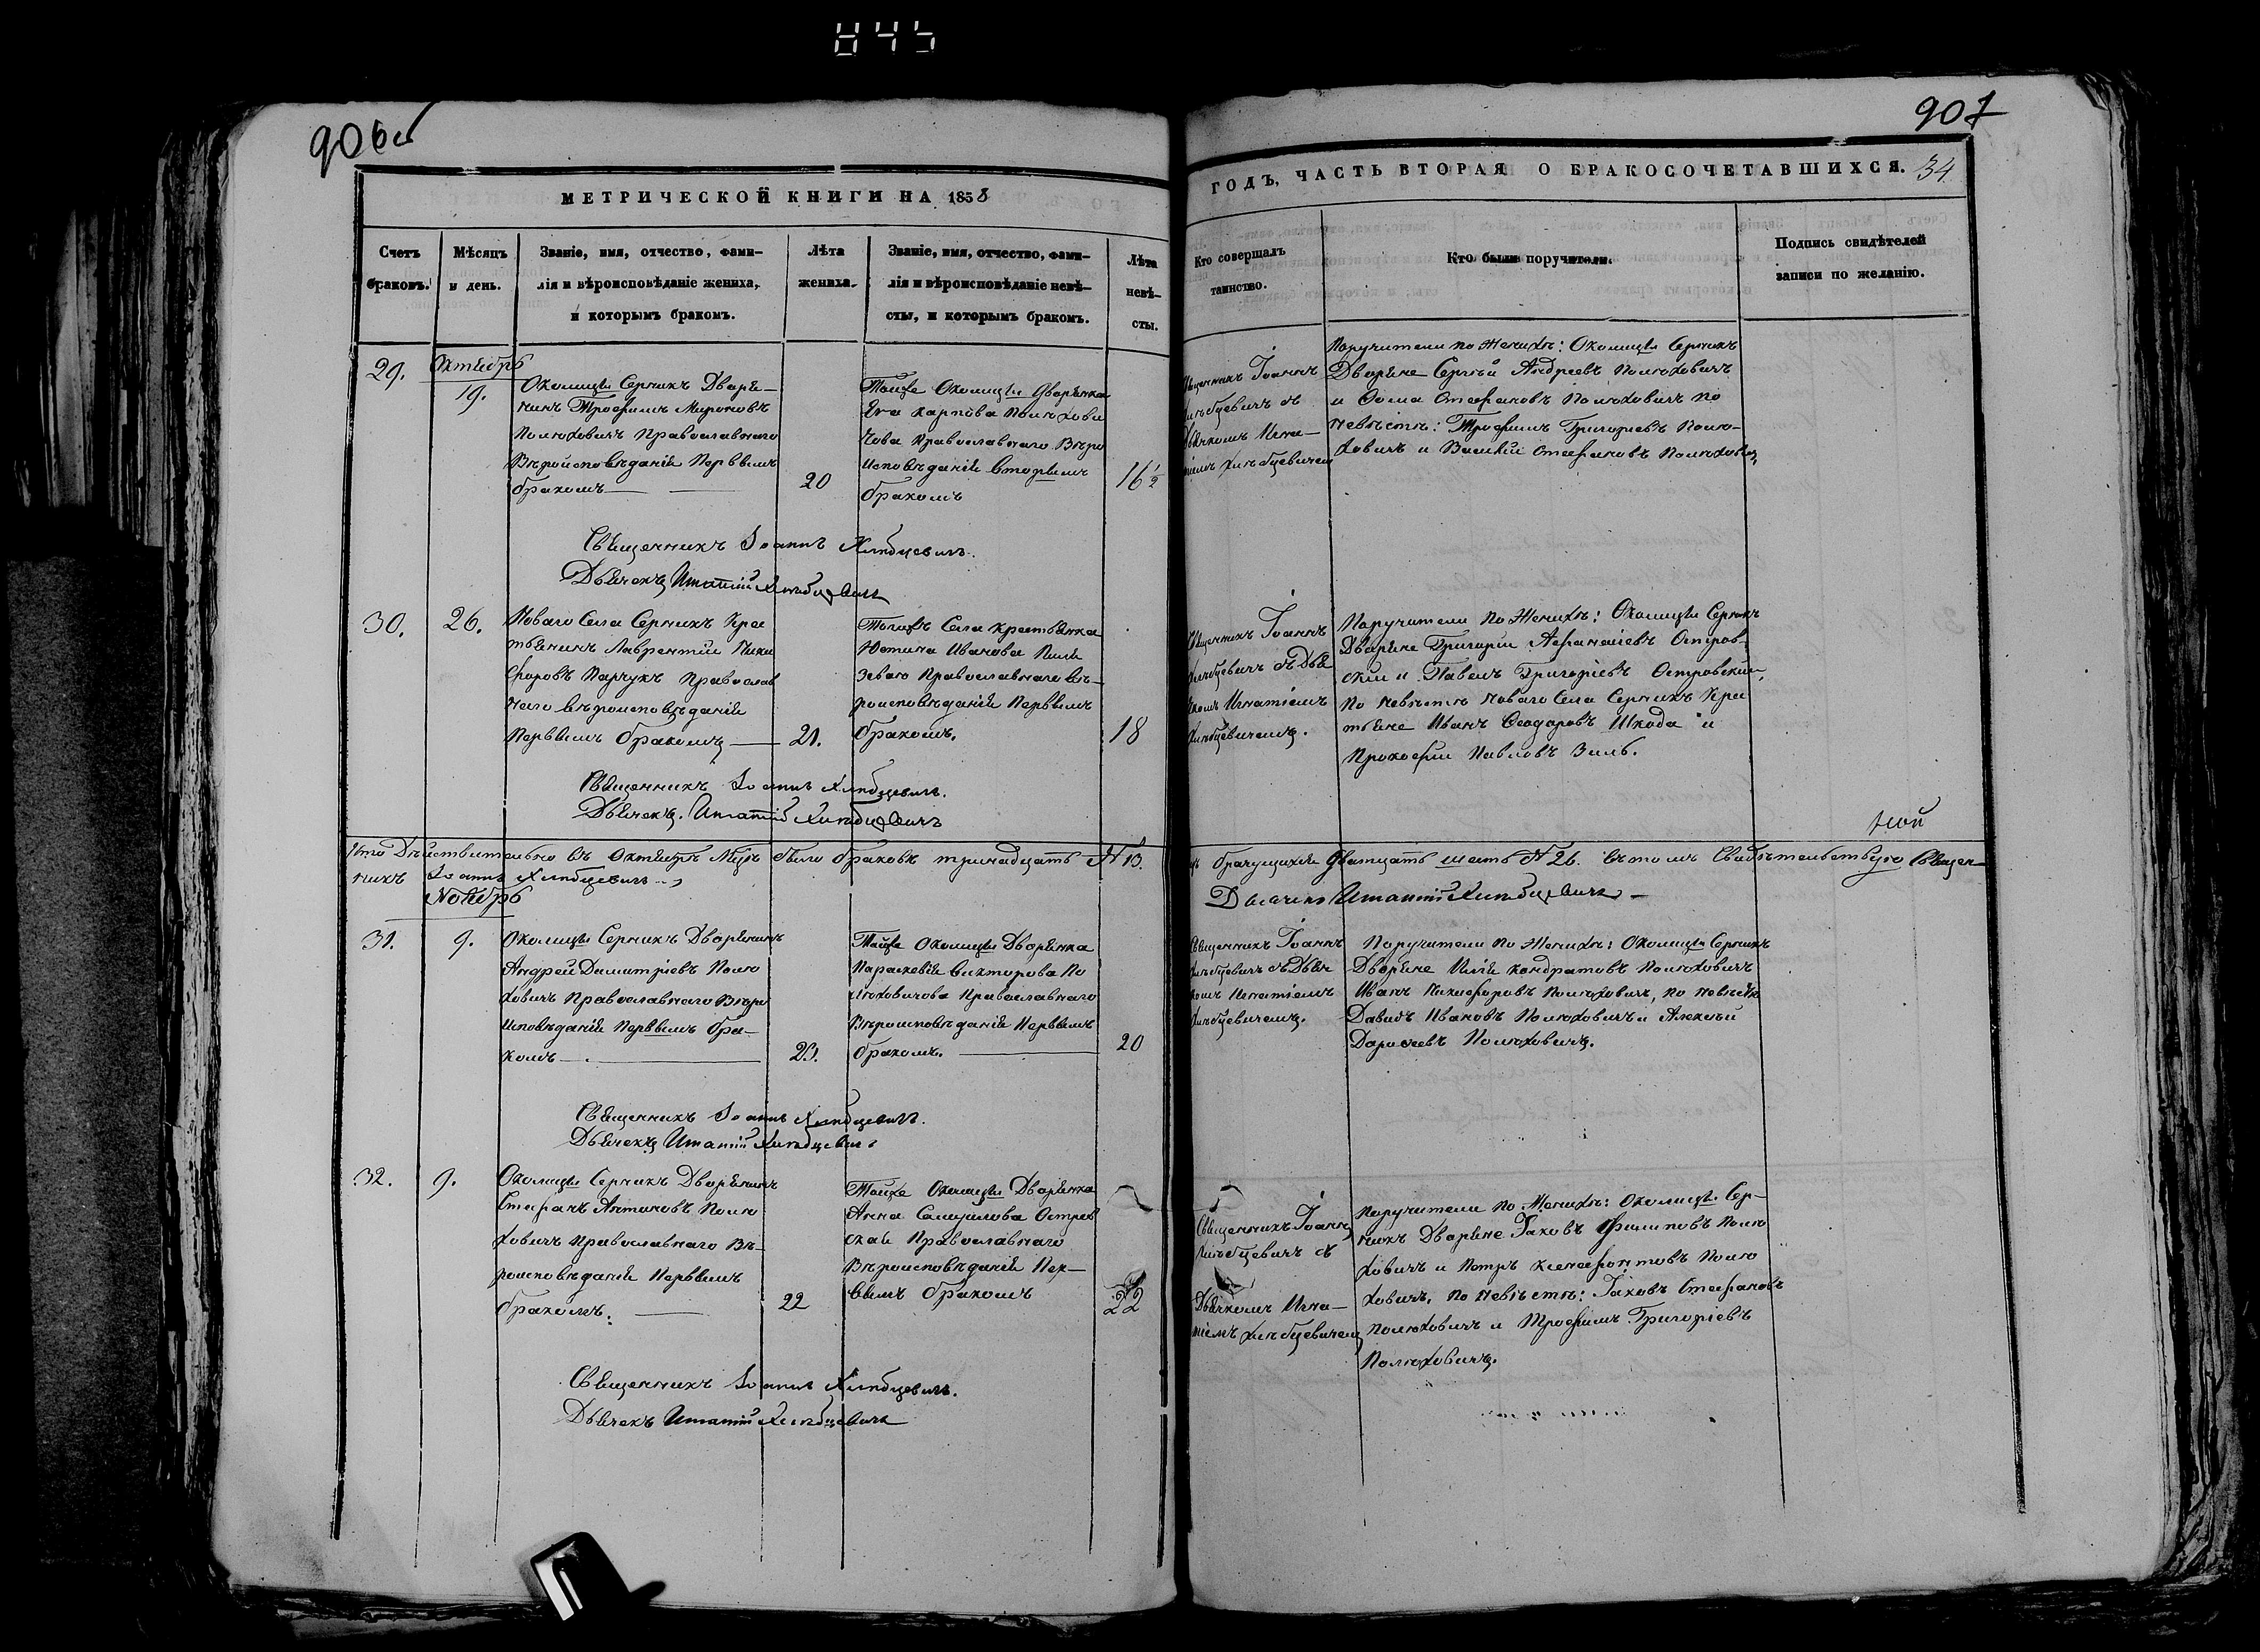 845
906об
907
МЕТРИЧЕСКОЙ КНИГИ НА 1858
ГОДЪ, ЧАСТЬ ВТОРАЯ О БРАКОСОЧЕТАВШИХСЯ. 34
Счетъ
браковъ.
Мѣсяцъ
и день.
Званіе, имя, отчество, фами-
лія и вѣроисповѣданіе жениха,
и которымъ бракомъ.
Лѣта
жениха.
Званіе, имя, отчество, фами-
лія и вѣроисповѣданіе невѣ-
сты, и которымъ бракомъ.
Лѣта
невѣ-
сты.
Кто совершалъ
таинство.
Кто были поручители.
Подпись свидѣтелей
записи по желанію.
29.
Октябрь
19.
Околицы Серникъ Дворя-
нинъ Трофимъ Мироновъ
Полюховичъ Православнаго
Вѣроисповѣданія Первымъ
бракомъ
20
Тойже Околицы Дворянка
Ева Карпова Полюхови
чова Православнаго Вѣро
исповѣданія Вторымъ
бракомъ
16 1/2
Священникъ Іоаннъ
Хлѣбцевичъ съ
Дьячкомъ Игна-
тіемъ Хлѣбцевичемъ
Поручители по Женихѣ: Околицы Серникъ
Дворяне Сергѣй Андреевъ Полюховичъ
и Ѳома Стефановъ Полюховичъ по
Невѣстѣ: Трофимъ Григорьевъ Полю-
ховичъ и Василій Стефановъ Полюховичъ,
Священникъ Іоаннъ Хлѣбцевичъ.
Дьячекъ Игнатій Хлѣбцевичъ
30.
26.
Новаго Села Серникъ Кре
стьянинъ Лаврентій Ники
форовъ Парчукъ Православ
наго вѣроисповѣданія
Первымъ бракомъ
21.
Тогожъ Села Крестьянка
Юстина Иванова
Православнаго Вѣ-
роисповѣданія Первымъ
бракомъ.
18
Священникъ Іоаннъ
Хлѣбцевичъ съ Дья
чкомъ Игнатіемъ
Хлѣбцевичемъ.
Поручители по Женихѣ: Околицы Серникъ
Дворяне Григорій Афанасіевъ Остров-
скій и Павелъ Григоріевъ Островскій,
По Невѣстѣ Новаго Села Серникъ Кре
стьяне Иванъ Ѳеодоровъ Шкода и
Прокофій Павловъ Зиль.
Священникъ Іоаннъ Хлѣбцевичъ.
Дьячекъ. Игнатій Хлѣбцевичъ
Что Дѣйствительно въ Октябрѣ Мцѣ было браковъ тринадцать N 13.
брачущихся Двадцать шесть N 26. въ томъ Свидѣтельствую Священ-
никъ Іоаннъ Хлѣбцевичъ
Дьячекъ Игнатій Хлѣбцевичъ
Ноябрь
31.
9.
Околицы Серникъ Дворянинъ
Андрей Димитріевъ Полю
ховичъ Православнаго Вѣро
исповѣданія Первымъ бра-
комъ
Тойже Околицы Дворянка
Параскевія Викторова По
люховичова Православнаго
Вѣроисповѣданія Первымъ
бракомъ.
20
Священникъ Іоаннъ
Хлѣбцевичъ съ Дьяч
комъ Игнатіемъ
Хлѣбцевичемъ.
Поручители по Женихѣ: Околицы Серникъ
Дворяне Илія Кондратовъ Полюховичъ
Иванъ Никифоровъ Полюховичъ, по Невѣстѣ
Давидъ Ивановъ Полюховичъ и Алексѣй
Дороѳеевъ Полюховичъ.
Священникъ Іоаннъ Хлѣбцевичъ.
Дьячекъ Игнатій Хлѣбцевичъ
32.
9.
Околицы Серникъ Дворянинъ
Стефанъ Антоновъ Полю
ховичъ Православнаго Вѣ-
роисповѣданія Первымъ
бракомъ.
22
Тойже Околицы Дворянка
Анна Самуилова Остров
ская Православнаго
Вѣроисповѣданія Пер-
вымъ бракомъ
22
Священникъ Іоаннъ
Хлѣбцевичъ съ
Дьячкомъ Игна-
тіемъ Хлѣбцевичемъ
Поручители по Женихѣ: Околицы Сер-
никъ Дворяне Іаковъ Филиповъ Полю
ховичъ и Петръ Ксенофонтовъ Полю
ховичъ, по Невѣстѣ: Іаковъ Стефановъ
Полюховичъ и Трофимъ Григоріевъ
Полюховичъ.
Священникъ Іоаннъ Хлѣбцевичъ.
Дьячекъ Игнатій Хлѣбцевичъ